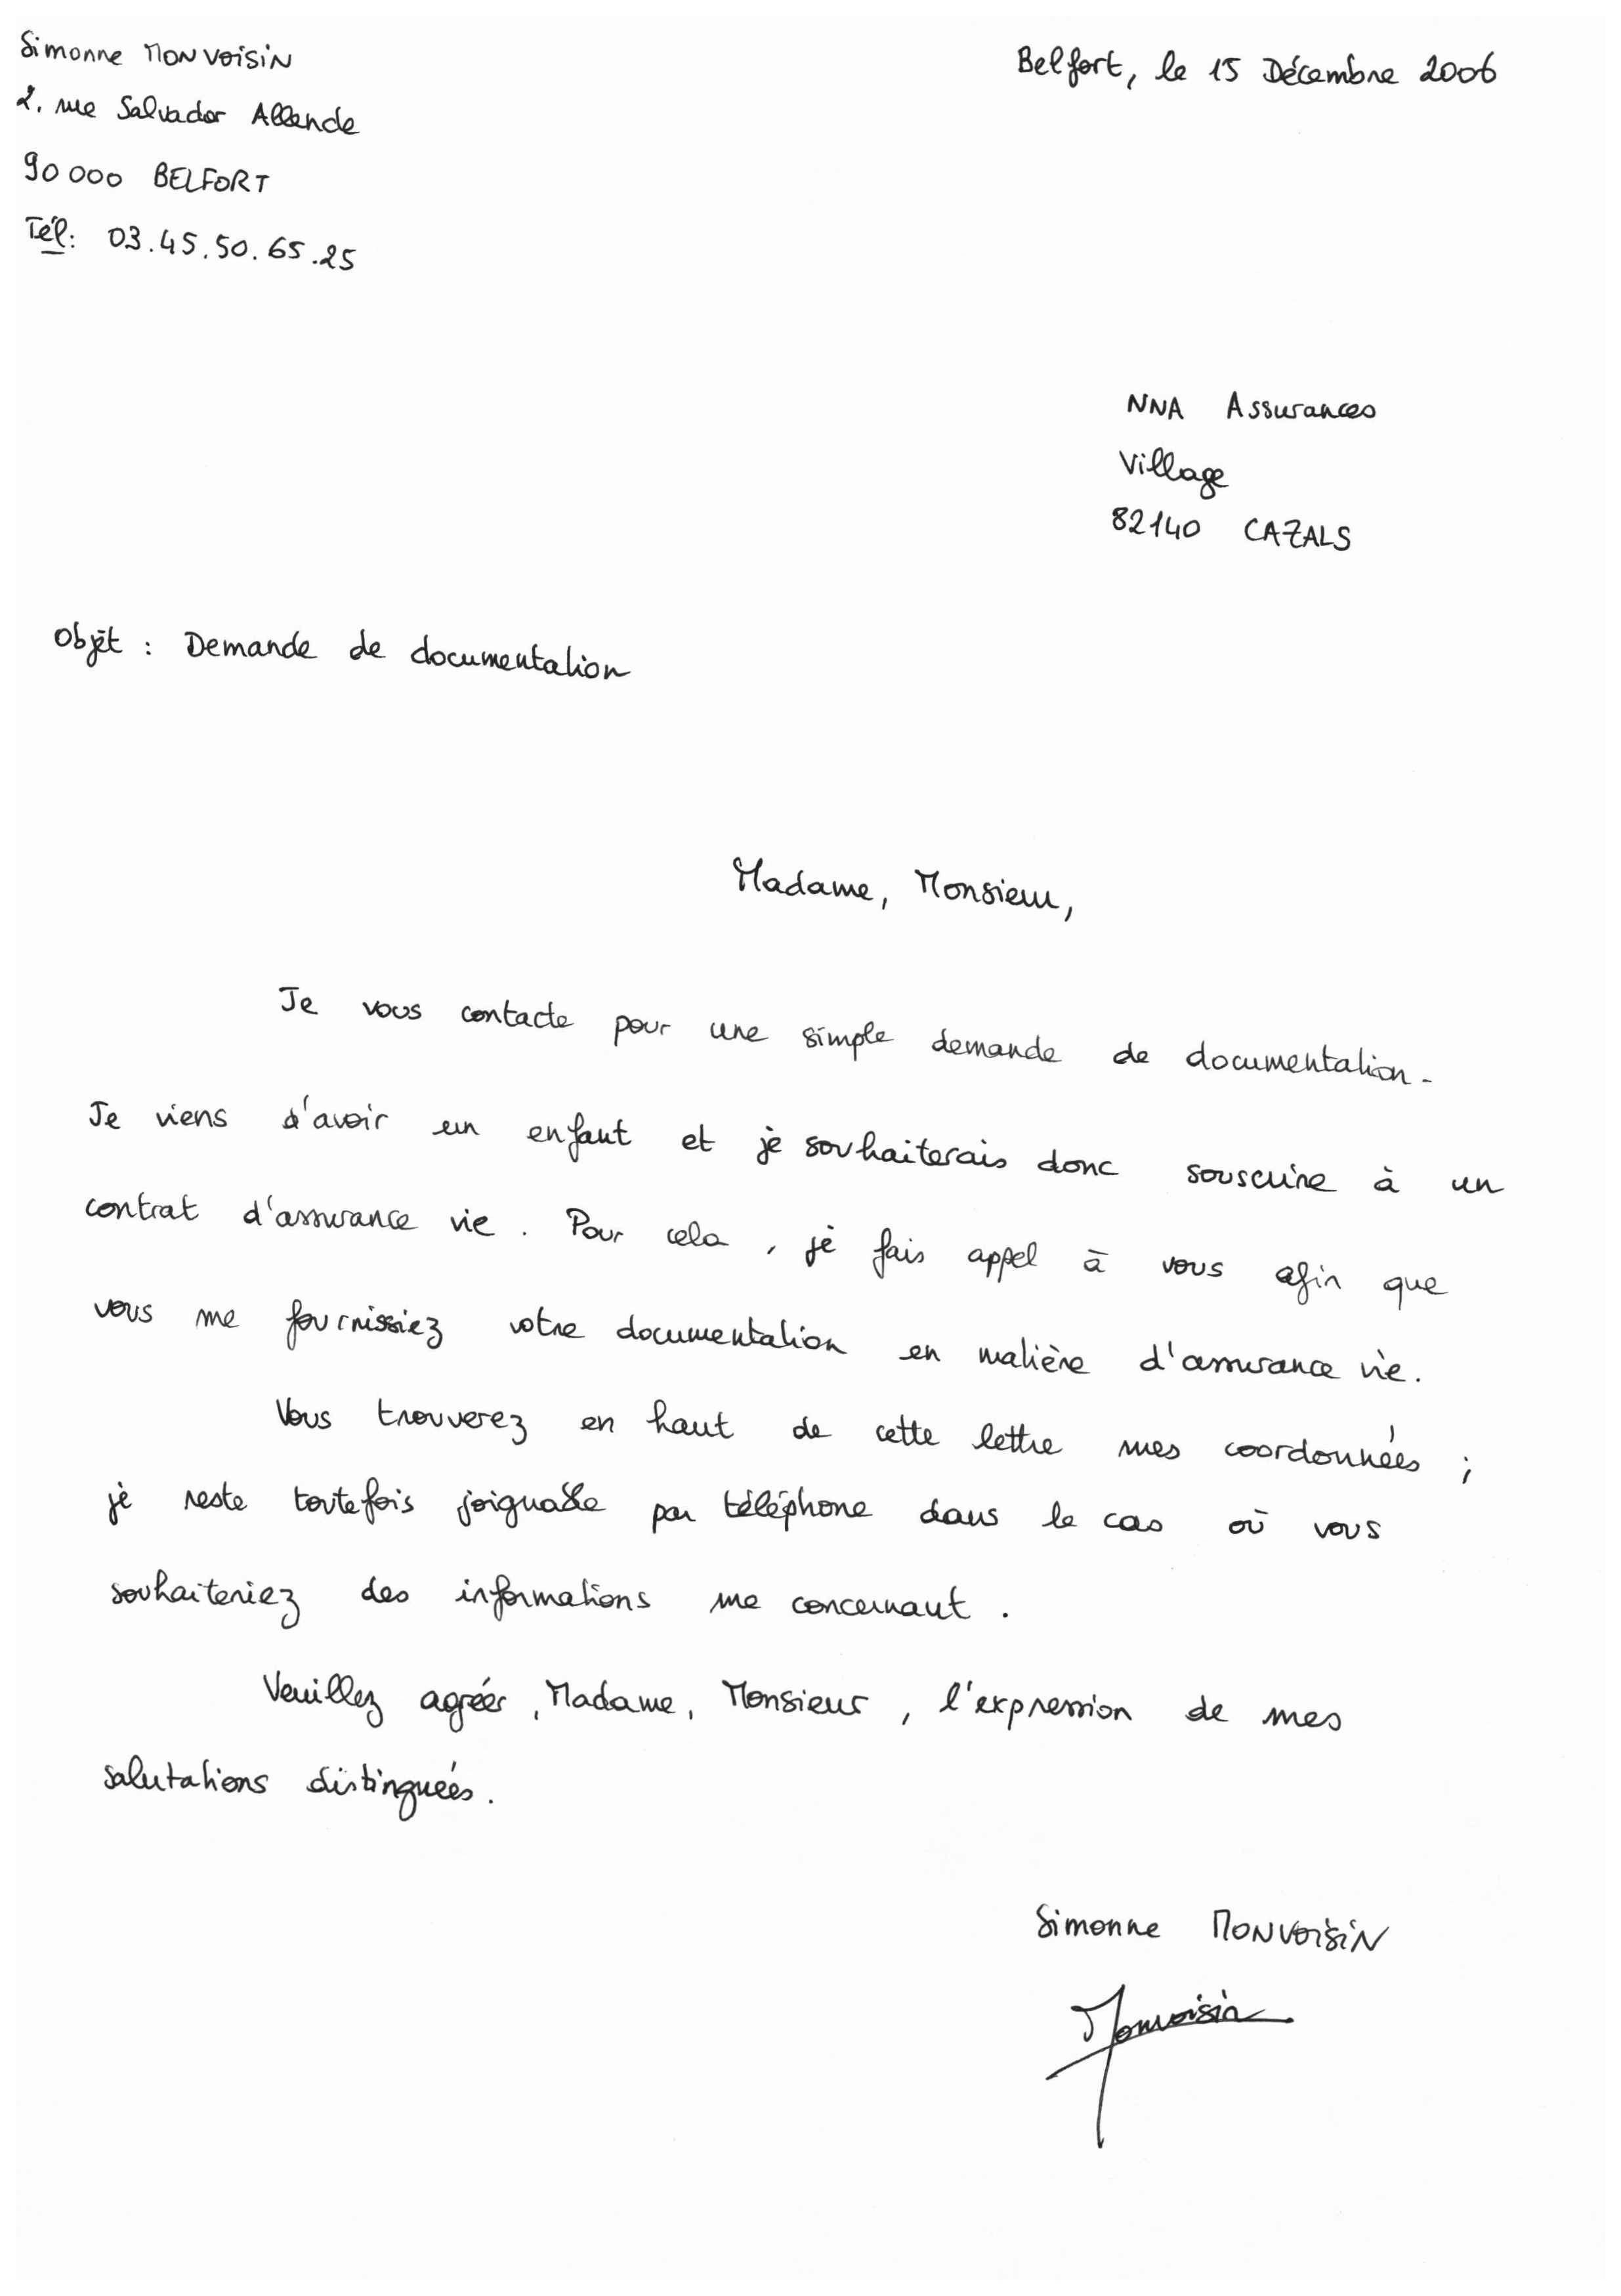 Simonne MONVOISIN
2. rue Salvador Allende
90 000 BELFORT
Tél: 03.45.50.65.25
Belfort, le 15 Décembre 2006
NNA Assurances
Village
82140 CAZALS
Objet : Demande de documentation
Madame, Monsieur,
Je vous contacte pour une simple demande de documentation.
Je viens d'avoir un enfant et je souhaiterais donc souscrire à un
contrat d'assurance vie. Pour cela, je fais appel à vous afin que
vous me fournissiez votre documentation en matière d'assurance vie.
Vous trouverez en haut de cette lettre mes coordonnées ;
je reste toutefois joignable par téléphone dans le cas où vous
souhaiteriez des informations me concernant.
Veuillez agréer, Madame, Monsieur, l'expression de mes
salutations distinguées.
Simonne MONVOISIN
Monvoisin